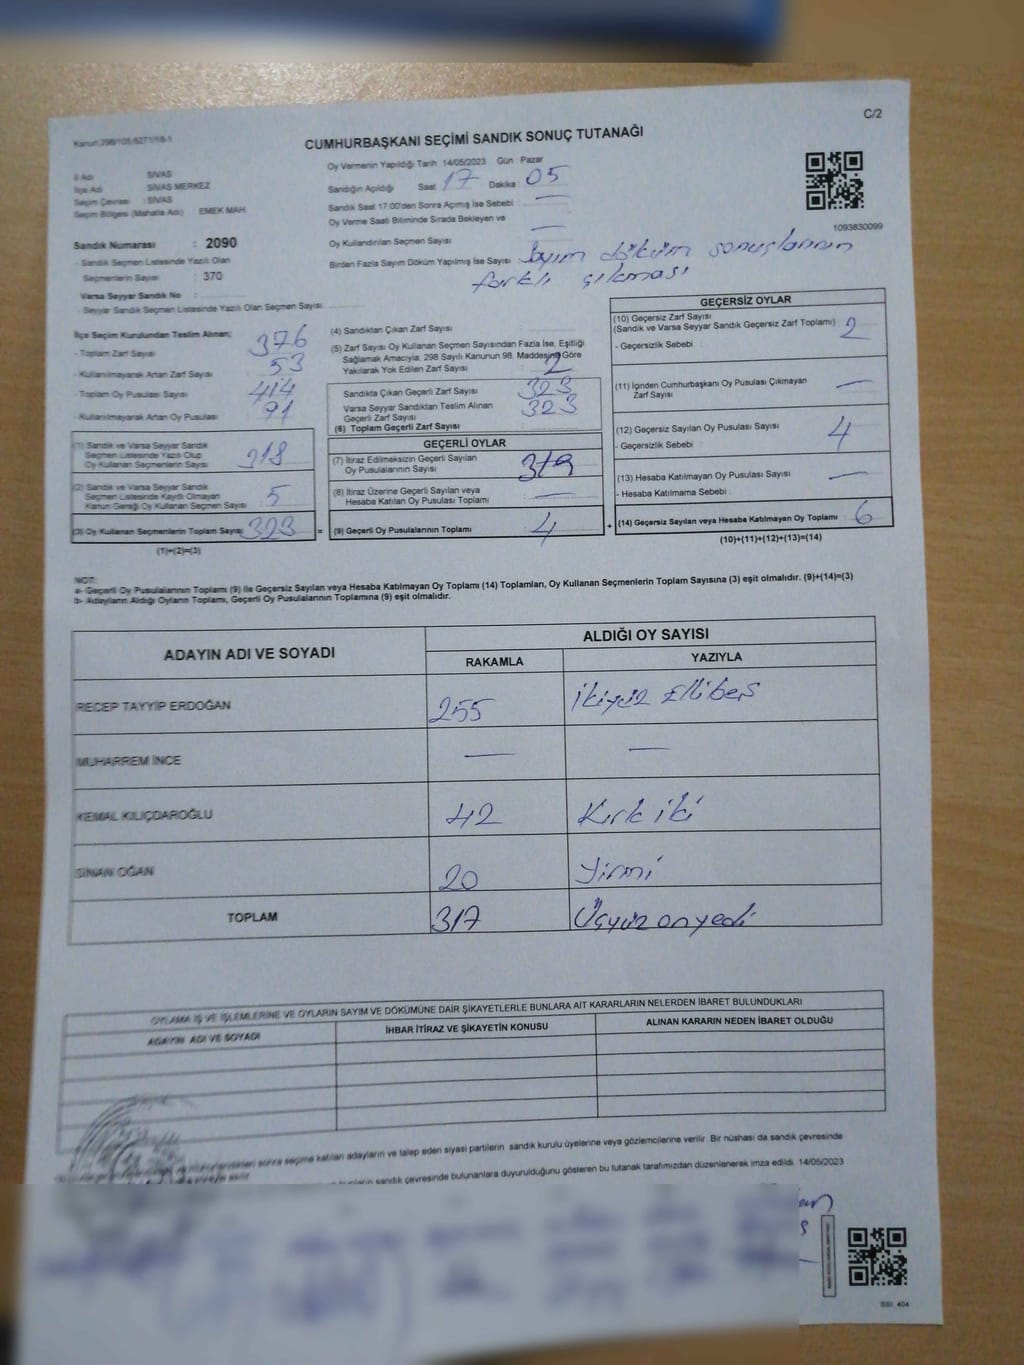 C/2
Kanun:298/105;6271/16-1
CUMHURBAŞKANI SEÇİMİ SANDIK SONUÇ TUTANAĞI
İl Adı : SİVAS
İlçe Adı : SİVAS MERKEZ
Seçim Çevresi : SİVAS
Seçim Bölgesi (Mahalle Adı) : EMEK MAH.
Sandık Numarası : 2090
- Sandık Seçmen Listesinde Yazılı Olan
Seçmenlerin Sayısı : 370
Varsa Seyyar Sandık No :
- Seyyar Sandık Seçmen Listesinde Yazılı Olan Seçmen Sayısı :
Oy Vermenin Yapıldığı Tarih 14/05/2023 Gün : Pazar
Sandığın Açıldığı Saat 17 Dakika 05
Sandık Saat 17:00'den Sonra Açımış İse Sebebi : —
Oy Verme Saati Bitiminde Sırada Bekleyen ve
Oy Kullandırılan Seçmen Sayısı —
Birden Fazla Sayım Döküm Yapılmış İse Sayısı Sayım döküm sonuçlarının
farklı çıkması
1093830099
İlçe Seçim Kurulundan Teslim Alınan;
- Toplam Zarf Sayısı 376
- Kullanılmayarak Artan Zarf Sayısı 53
- Toplam Oy Pusulası Sayısı 414
- Kullanılmayarak Artan Oy Pusulası 91
(1) Sandık ve Varsa Seyyar Sandık
Seçmen Listesinde Yazılı Olup
Oy Kullanan Seçmenlerin Sayısı 318
(2) Sandık ve Varsa Seyyar Sandık
Seçmen Listesinde Kayıtlı Olmayan
Kanun Gereği Oy Kullanan Seçmen Sayısı 5
(3) Oy Kullanan Seçmenlerin Toplam Sayısı 323 =
(1)+(2)=(3)
(4) Sandıktan Çıkan Zarf Sayısı :
(5) Zarf Sayısı Oy Kullanan Seçmen Sayısından Fazla İse, Eşitliği
Sağlamak Amacıyla, 298 Sayılı Kanunun 98. Maddesine Göre
Yakılarak Yok Edilen Zarf Sayısı 2
Sandıkta Çıkan Geçerli Zarf Sayısı 323
Varsa Seyyar Sandıktan Teslim Alınan
Geçerli Zarf Sayısı 323
(6) Toplam Geçerli Zarf Sayısı
GEÇERLİ OYLAR
(7) İtiraz Edilmeksizin Geçerli Sayılan
Oy Pusulalarının Sayısı
(8) İtiraz Üzerine Geçerli Sayılan veya
Hesaba Katılan Oy Pusulası Toplamı —
(9) Geçerli Oy Pusulalarının Toplamı 4 +
GEÇERSİZ OYLAR
(10) Geçersiz Zarf Sayısı
(Sandık ve Varsa Seyyar Sandık Geçersiz Zarf Toplamı) 2
- Geçersizlik Sebebi :
(11) İçinden Cumhurbaşkanı Oy Pusulası Çıkmayan
Zarf Sayısı —
(12) Geçersiz Sayılan Oy Pusulası Sayısı 4
- Geçersizlik Sebebi :
(13) Hesaba Katılmayan Oy Pusulası Sayısı —
- Hesaba Katılmama Sebebi :
(14) Geçersiz Sayılan veya Hesaba Katılmayan Oy Toplamı 6
(10)+(11)+(12)+(13)=(14)
NOT:
a- Geçerli Oy Pusulalarının Toplamı (9) ile Geçersiz Sayılan veya Hesaba Katılmayan Oy Toplamı (14) Toplamları, Oy Kullanan Seçmenlerin Toplam Sayısına (3) eşit olmalıdır. (9)+(14)=(3)
b- Adayların Aldığı Oyların Toplamı, Geçerli Oy Pusulalarının Toplamına (9) eşit olmalıdır.
ADAYIN ADI VE SOYADI
ALDIĞI OY SAYISI
RAKAMLA YAZIYLA
RECEP TAYYİP ERDOĞAN 255 İkiyüz Ellibeş
MUHARREM İNCE — —
KEMAL KILIÇDAROĞLU 42 Kırk iki
SİNAN OĞAN 20 Yirmi
TOPLAM 317 Üçyüz onyedi
OYLAMA İŞ VE İŞLEMLERİNE VE OYLARIN SAYIM VE DÖKÜMÜNE DAİR ŞİKAYETLERLE BUNLARA AİT KARARLARIN NELERDEN İBARET BULUNDUKLARI
ADAYIN ADI VE SOYADI İHBAR İTİRAZ VE ŞİKAYETİN KONUSU ALINAN KARARIN NEDEN İBARET OLDUĞU
sonra seçime katılan adayların ve talep eden siyasi partilerin sandık kurulu üyelerine veya gözlemcilerine verilir. Bir nüshası da sandık çevresinde
sandık çevresinde bulunanlara duyurulduğunu gösteren bu tutanak tarafımızdan düzenlenerek imza edildi. 14/05/2023
SSI: 404